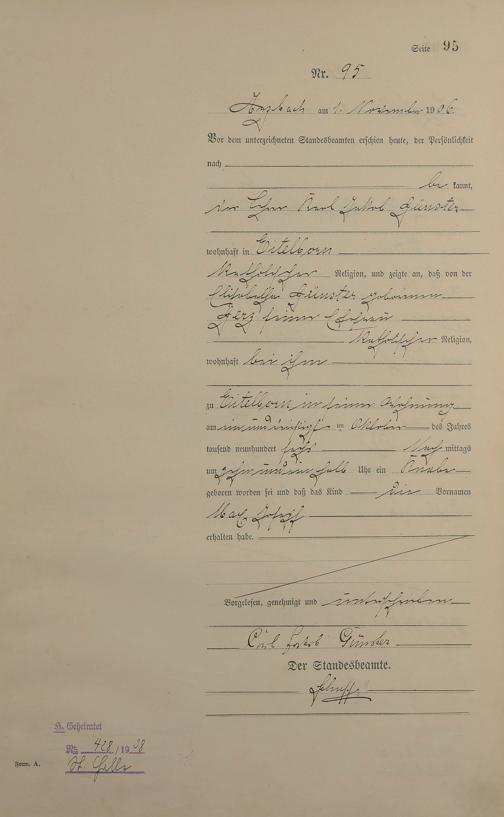 Seite 95
Nr. 95
Arzbach am 1. November 1906.
Vor dem unterzeichneten Standesbeamten erschien heute, der Persönlichkeit
nach
be kannt,
der Karl Jakob Günster
wohnhaft in Eitelborn
katholischer Religion, und zeigte an, daß von der
Elisabetha Günster geborenen
seiner Ehefrau
katholischer Religion,
wohnhaft bei ihm
zu Eitelborn in seiner Wohnung
am einunddreißigsten Oktober des Jahres
tausend neunhundert sechs Nach mittags
um zehn und ein halb Uhr ein Knabe
geboren worden sei und daß das Kind die Vornamen
Max Josef
erhalten habe.
Vorgelesen, genehmigt und unterschrieben
Carl Jakob Günster
Der Standesbeamte.
H. Geheiratet
Nr. 428/1938
Form. A.